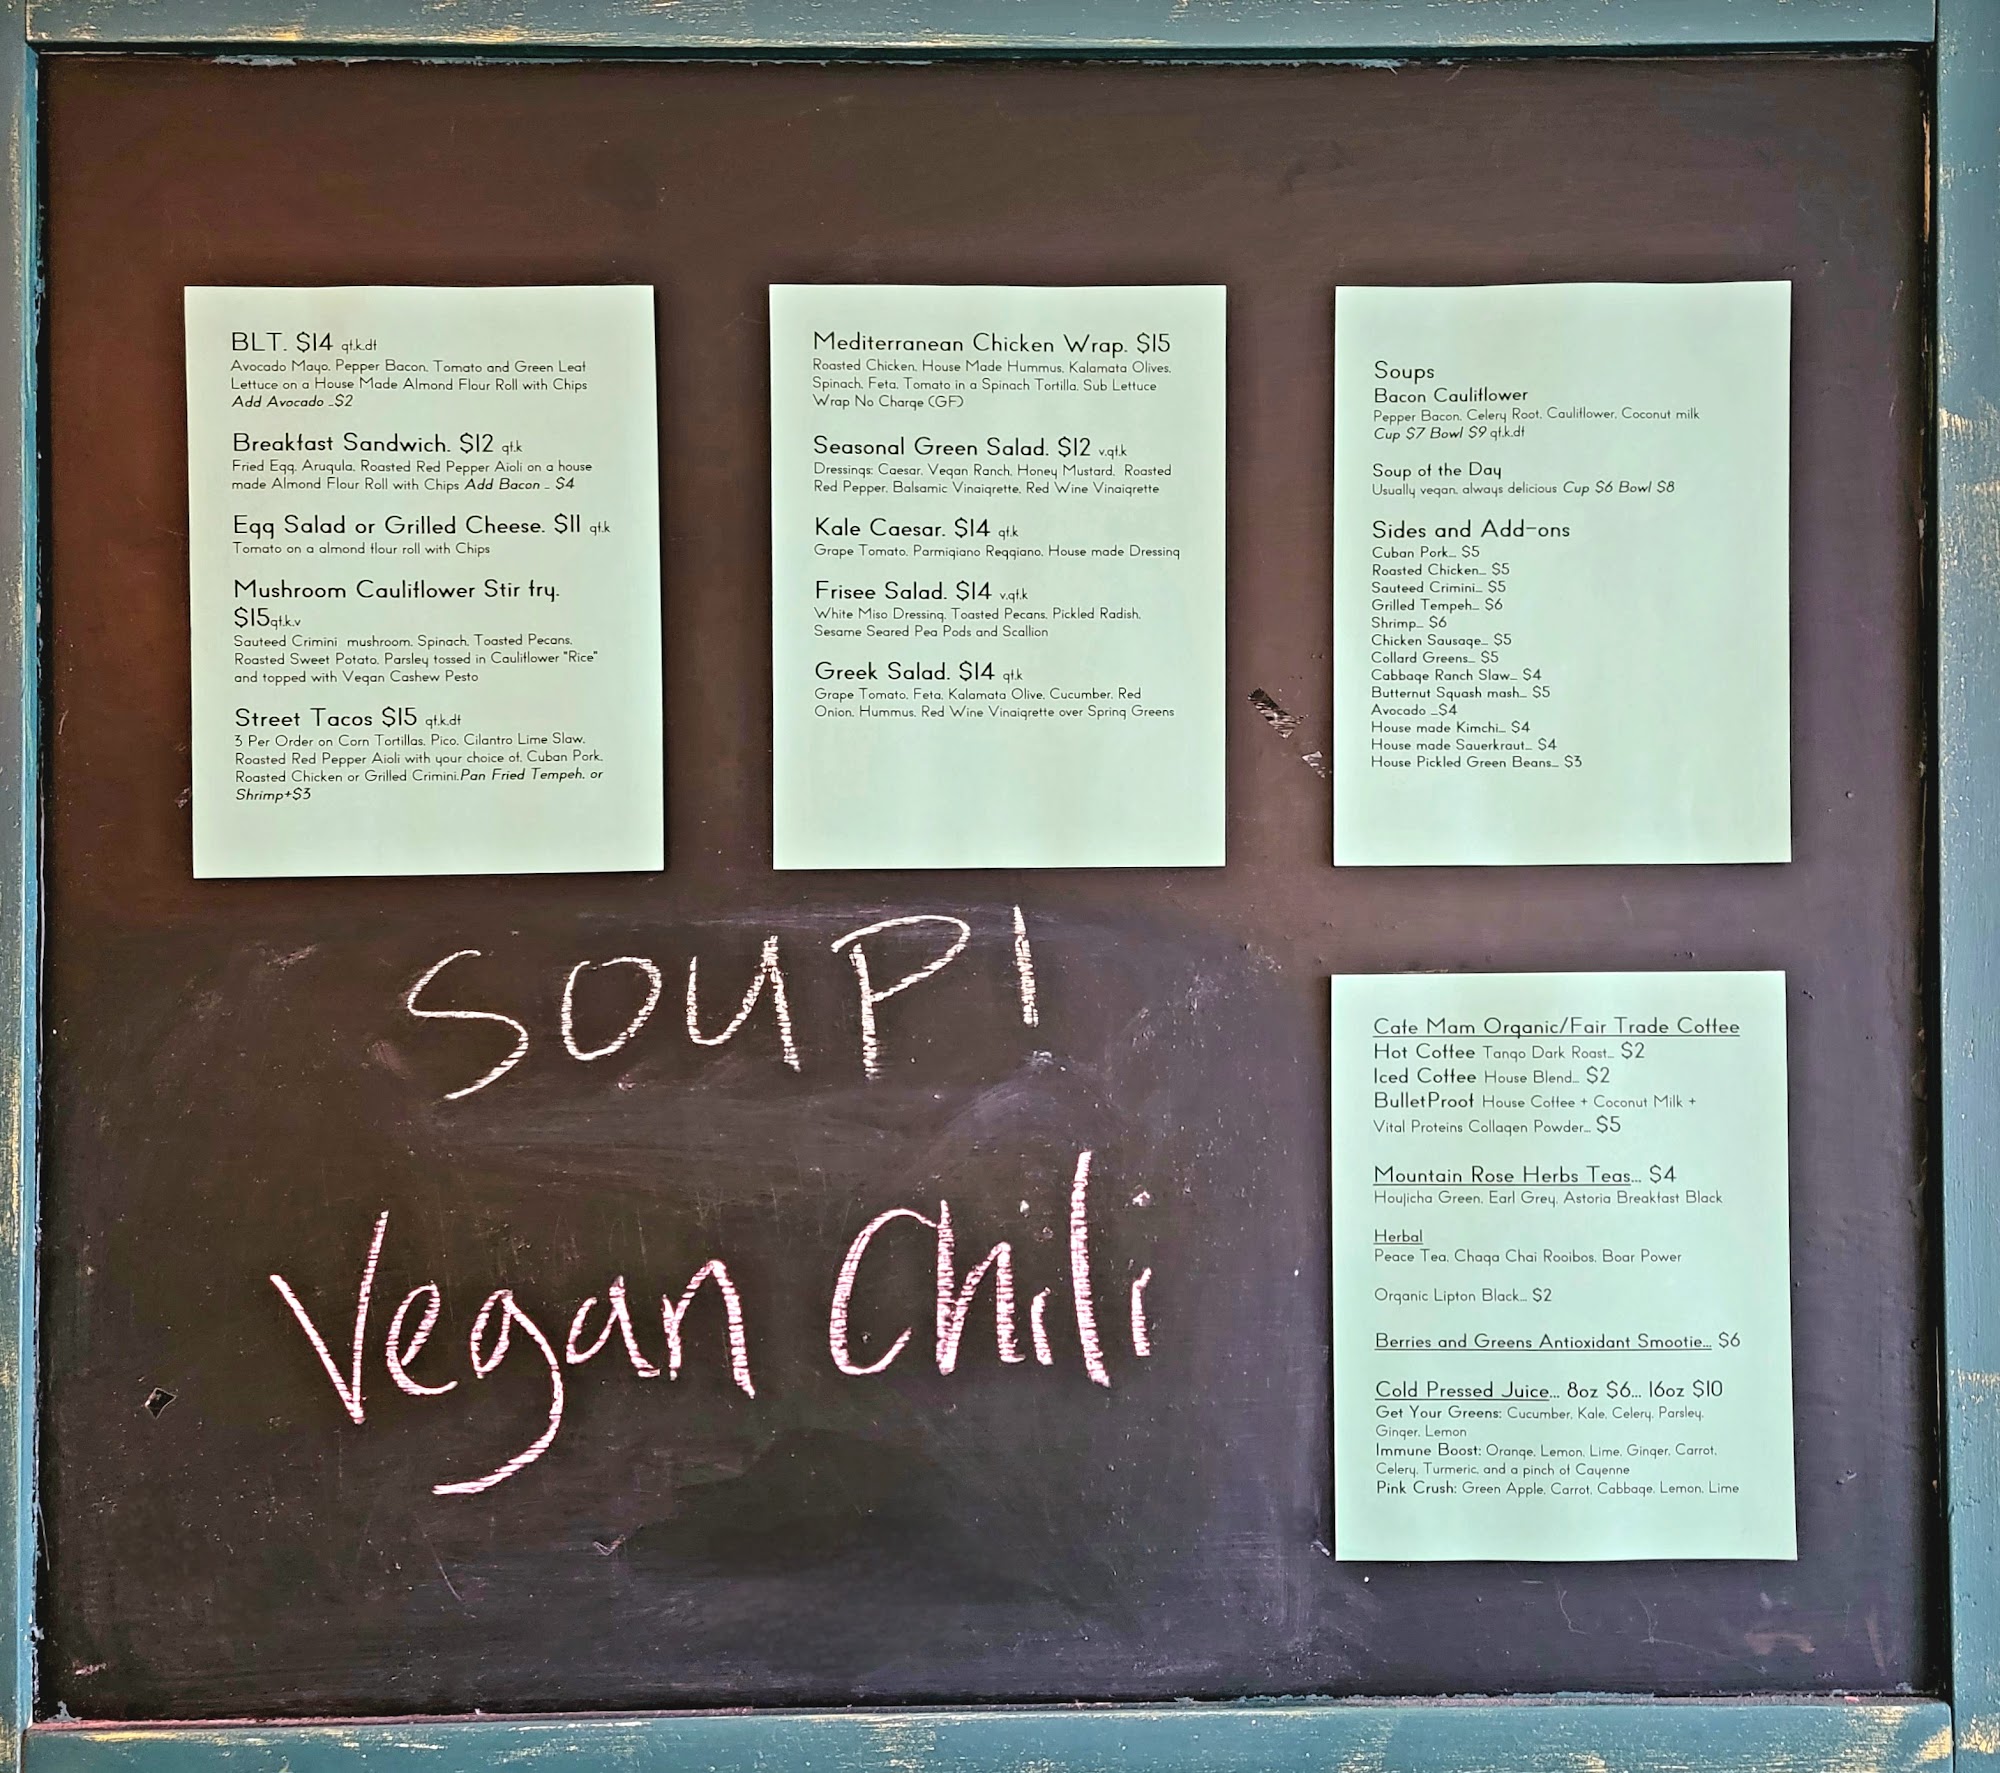 BLT. $14 gf.k.df
Avocado Mayo, Pepper Bacon, Tomato and Green Leaf
Lettuce on a House Made Almond Flour Roll with Chips
Add Avocado ..$2
Breakfast Sandwich. $12 gf.k
Fried Egg, Arugula, Roasted Red Pepper Aioli on a house
made Almond Flour Roll with Chips Add Bacon .. $4
Egg Salad or Grilled Cheese. $11 gf.k
Tomato on a almond flour roll with Chips
Mushroom Cauliflower Stir fry.
$15gf.k.v
Sauteed Crimini mushroom, Spinach, Toasted Pecans,
Roasted Sweet Potato, Parsley tossed in Cauliflower "Rice"
and topped with Vegan Cashew Pesto
Street Tacos $15 gf.k.df
3 Per Order on Corn Tortillas, Pico, Cilantro Lime Slaw,
Roasted Red Pepper Aioli with your choice of, Cuban Pork,
Roasted Chicken or Grilled Crimini.Pan Fried Tempeh, or
Shrimp+$3
Mediterranean Chicken Wrap. $15
Roasted Chicken, House Made Hummus, Kalamata Olives,
Spinach, Feta, Tomato in a Spinach Tortilla. Sub Lettuce
Wrap No Charge (GF)
Seasonal Green Salad. $12 v.gf.k
Dressings: Caesar, Vegan Ranch, Honey Mustard, Roasted
Red Pepper, Balsamic Vinaigrette, Red Wine Vinaigrette
Kale Caesar. $14 gf.k
Grape Tomato, Parmigiano Reggiano, House made Dressing
Frisee Salad. $14 v.gf.k
White Miso Dressing, Toasted Pecans, Pickled Radish,
Sesame Seared Pea Pods and Scallion
Greek Salad. $14 gf.k
Grape Tomato, Feta, Kalamata Olive, Cucumber, Red
Onion, Hummus, Red Wine Vinaigrette over Spring Greens
Soups
Bacon Cauliflower
Pepper Bacon, Celery Root, Cauliflower, Coconut milk
Cup $7 Bowl $9 gf.k.df
Soup of the Day
Usually vegan, always delicious Cup $6 Bowl $8
Sides and Add-ons
Cuban Pork... $5
Roasted Chicken... $5
Sauteed Crimini... $5
Grilled Tempeh... $6
Shrimp... $6
Chicken Sausage... $5
Collard Greens... $5
Cabbage Ranch Slaw... $4
Butternut Squash mash... $5
Avocado ...$4
House made Kimchi... $4
House made Sauerkraut... $4
House Pickled Green Beans... $3
SOUP!
Vegan Chili
Cafe Mam Organic/Fair Trade Coffee
Hot Coffee Tango Dark Roast... $2
Iced Coffee House Blend... $2
BulletProof House Coffee + Coconut Milk +
Vital Proteins Collagen Powder... $5
Mountain Rose Herbs Teas... $4
Houjicha Green, Earl Grey, Astoria Breakfast Black
Herbal
Peace Tea, Chaga Chai Rooibos, Boar Power
Organic Lipton Black... $2
Berries and Greens Antioxidant Smootie... $6
Cold Pressed Juice... 8oz $6... 16oz $10
Get Your Greens: Cucumber, Kale, Celery, Parsley,
Ginger, Lemon
Immune Boost: Orange, Lemon, Lime, Ginger, Carrot,
Celery, Turmeric, and a pinch of Cayenne
Pink Crush: Green Apple, Carrot, Cabbage, Lemon, Lime